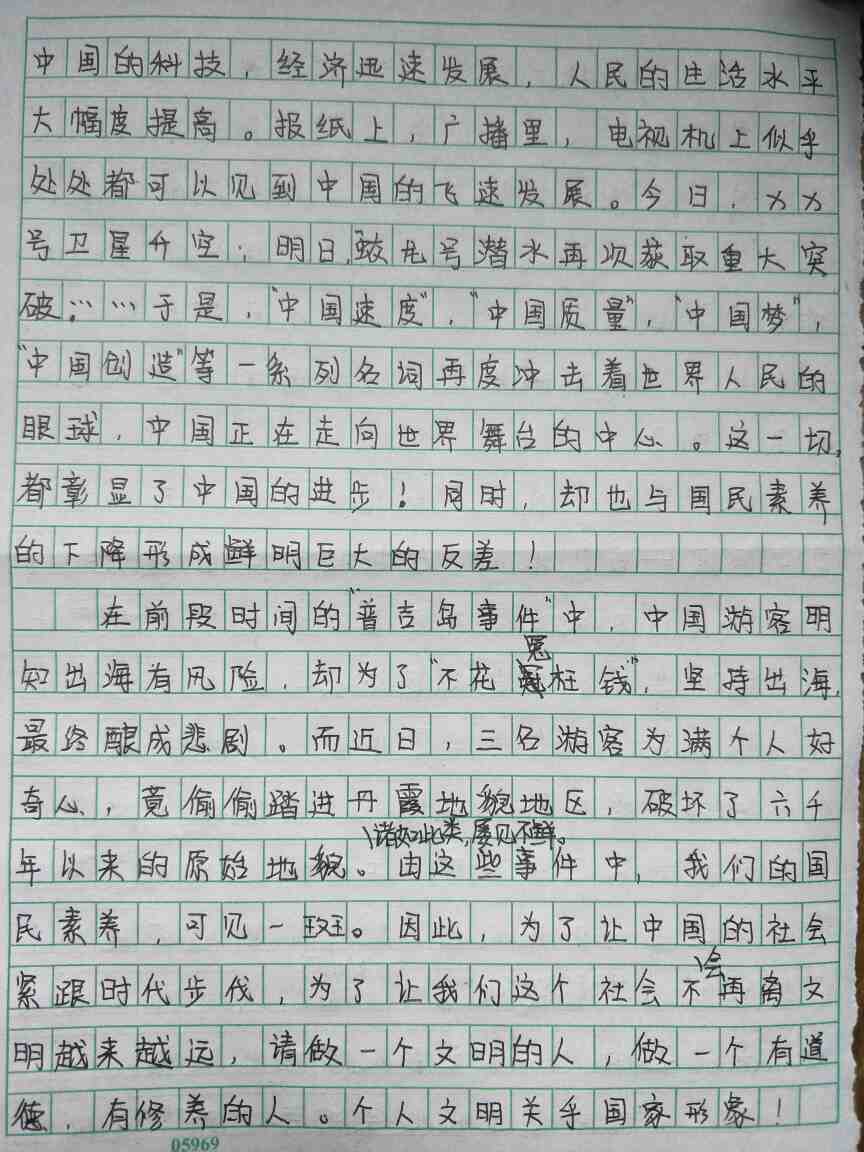 中国的科技，经济迅速发展，人民的生活水平
大幅度提高。报纸上，广播里，电视机上似乎
处处都可以见到中国的飞速发展。今日，XX
号卫星升空；明日，蛟龙号潜水再次获取重大突
破……于是，“中国速度”，“中国质量”，“中国梦”，
“中国创造”等一系列名词再度冲击着世界人民的
眼球，中国正在走向世界舞台的中心。这一切，
都彰显了中国的进步！同时，却也与国民素养
的下降形成鲜明巨大的反差！
在前段时间的“普吉岛事件”中，中国游客明
知出海有风险，却为了“不花冤枉钱”，坚持出海，
最终酿成悲剧。而近日，三名游客为满个人好
奇心，竟偷偷踏进丹霞地貌地区，破坏了六千
年以来的原始地貌。诸如此类，屡见不鲜。由这些事件中，我们的国
民素养，可见一斑。因此，为了让中国的社会
紧跟时代步伐，为了让我们这个社会不会再离文
明越来越远，请做一个文明的人，做一个有道
德，有修养的人。个人文明关乎国家形象！
05969